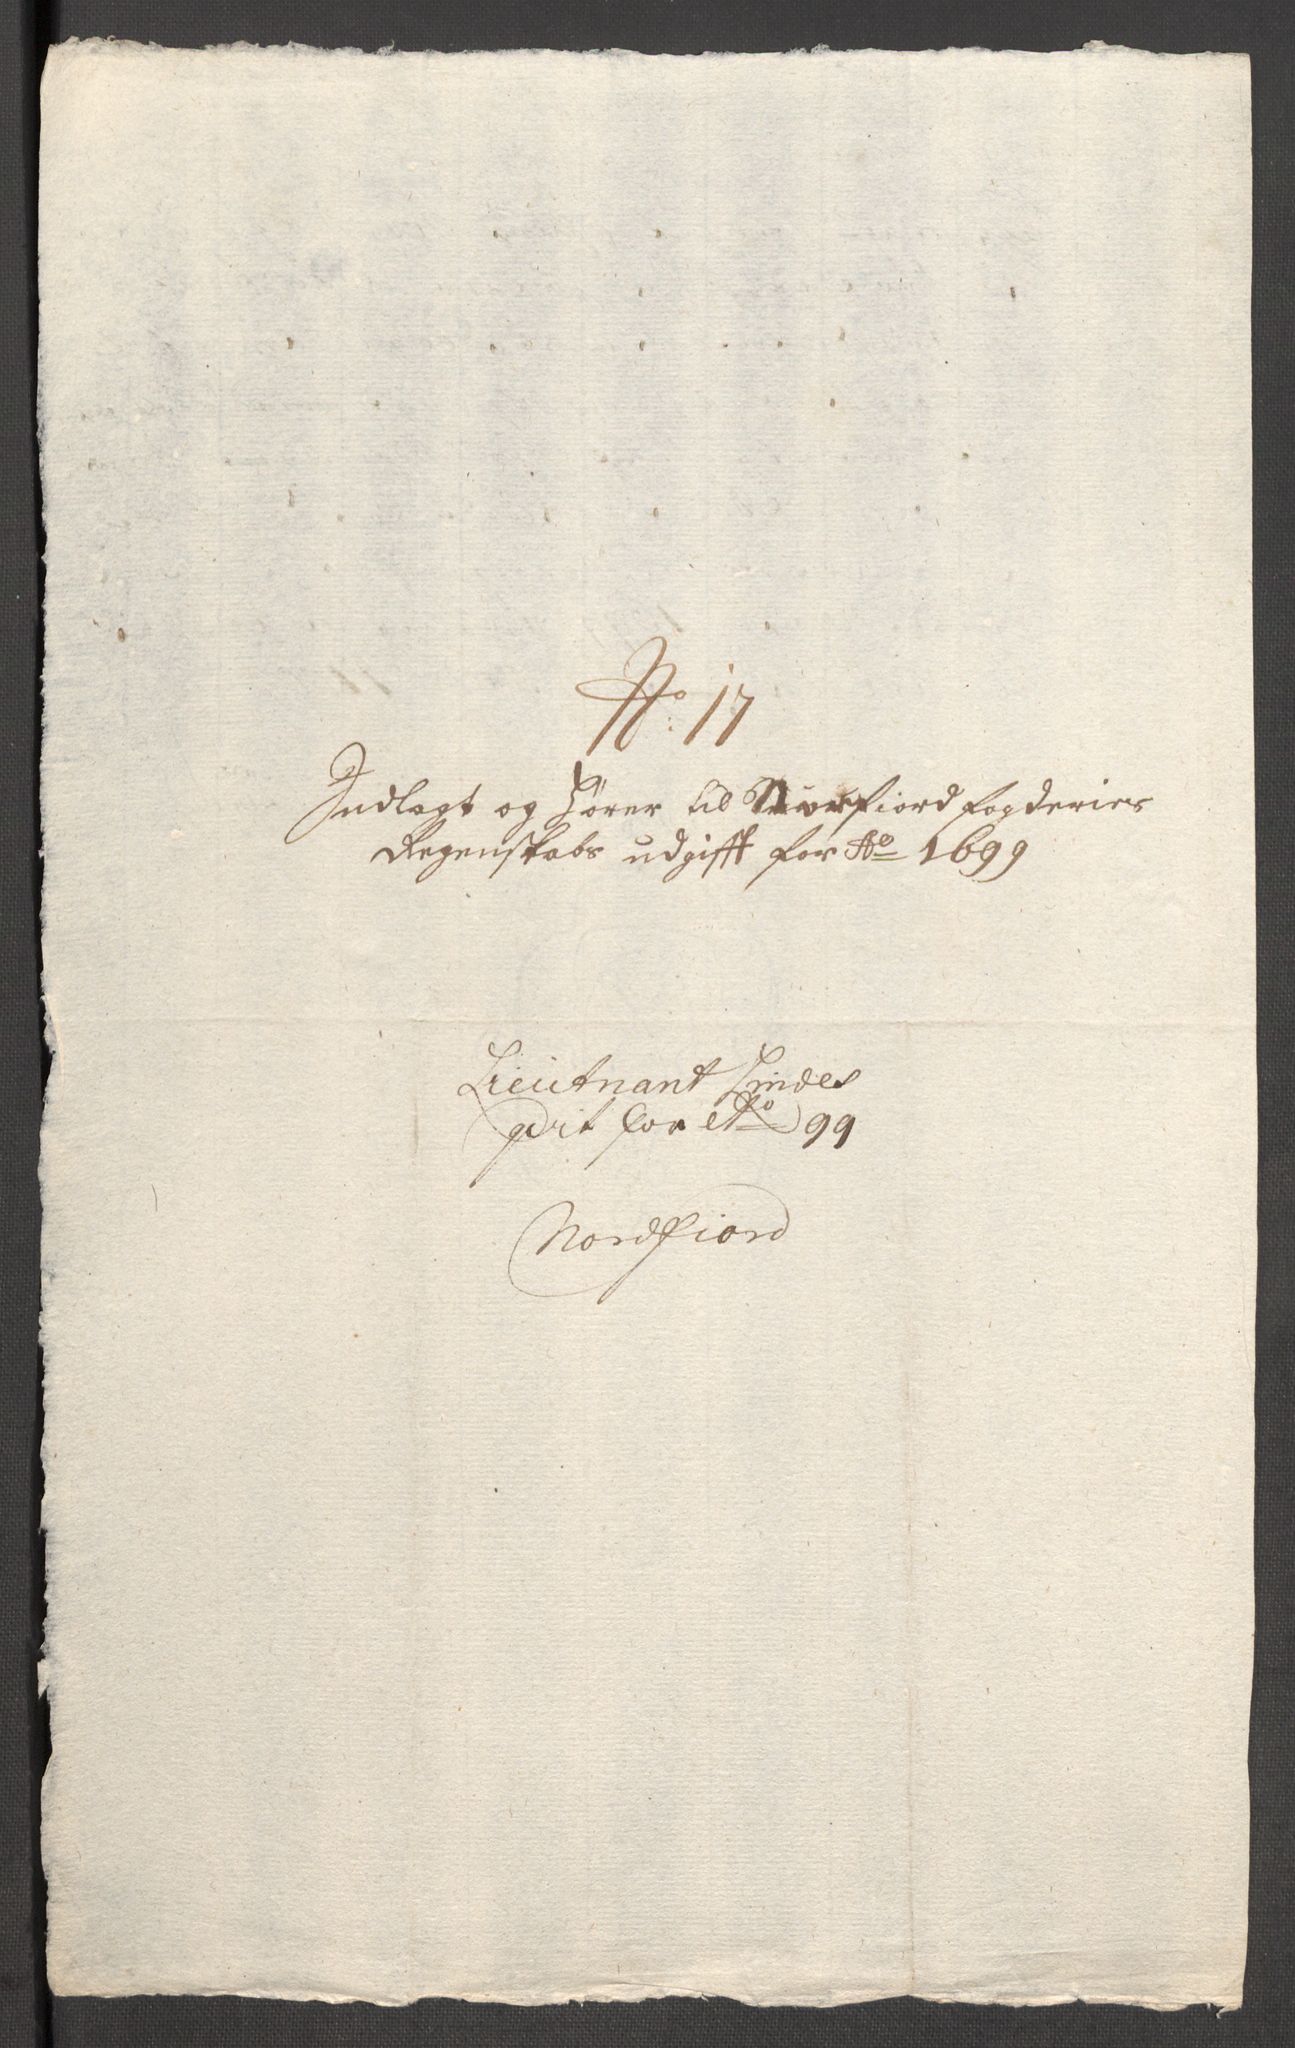 No: 17
Indlagt og hører til Nordfiord fogderies
Regenskabs udgifft for Ao 1699
Lieutnant Lindes
qvit for Ao 99
Nordfiord